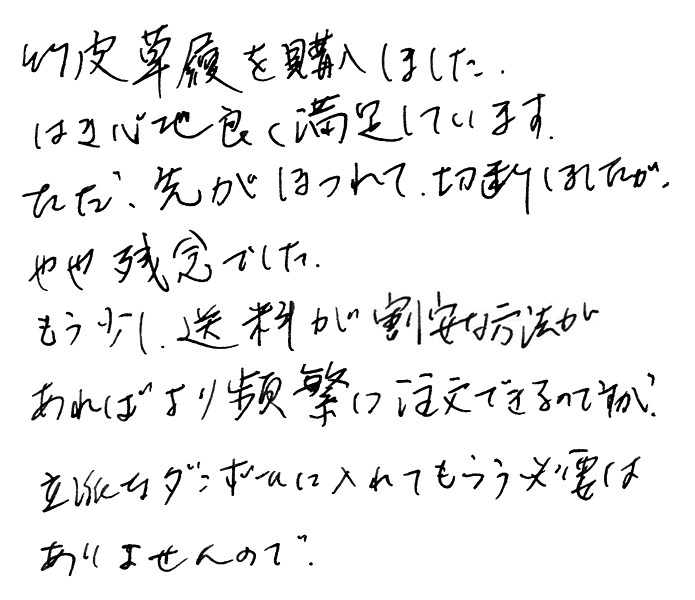 竹皮草履を購入しました.
はき心地良く満足しています.
ただ、先がほつれて、切断しましたが、
やや残念でした.
もう少し、送料が割安な方法が
あればより頻繁に注文できるのですが?
立派なダンボールに入れてもらう必要は
ありませんので.